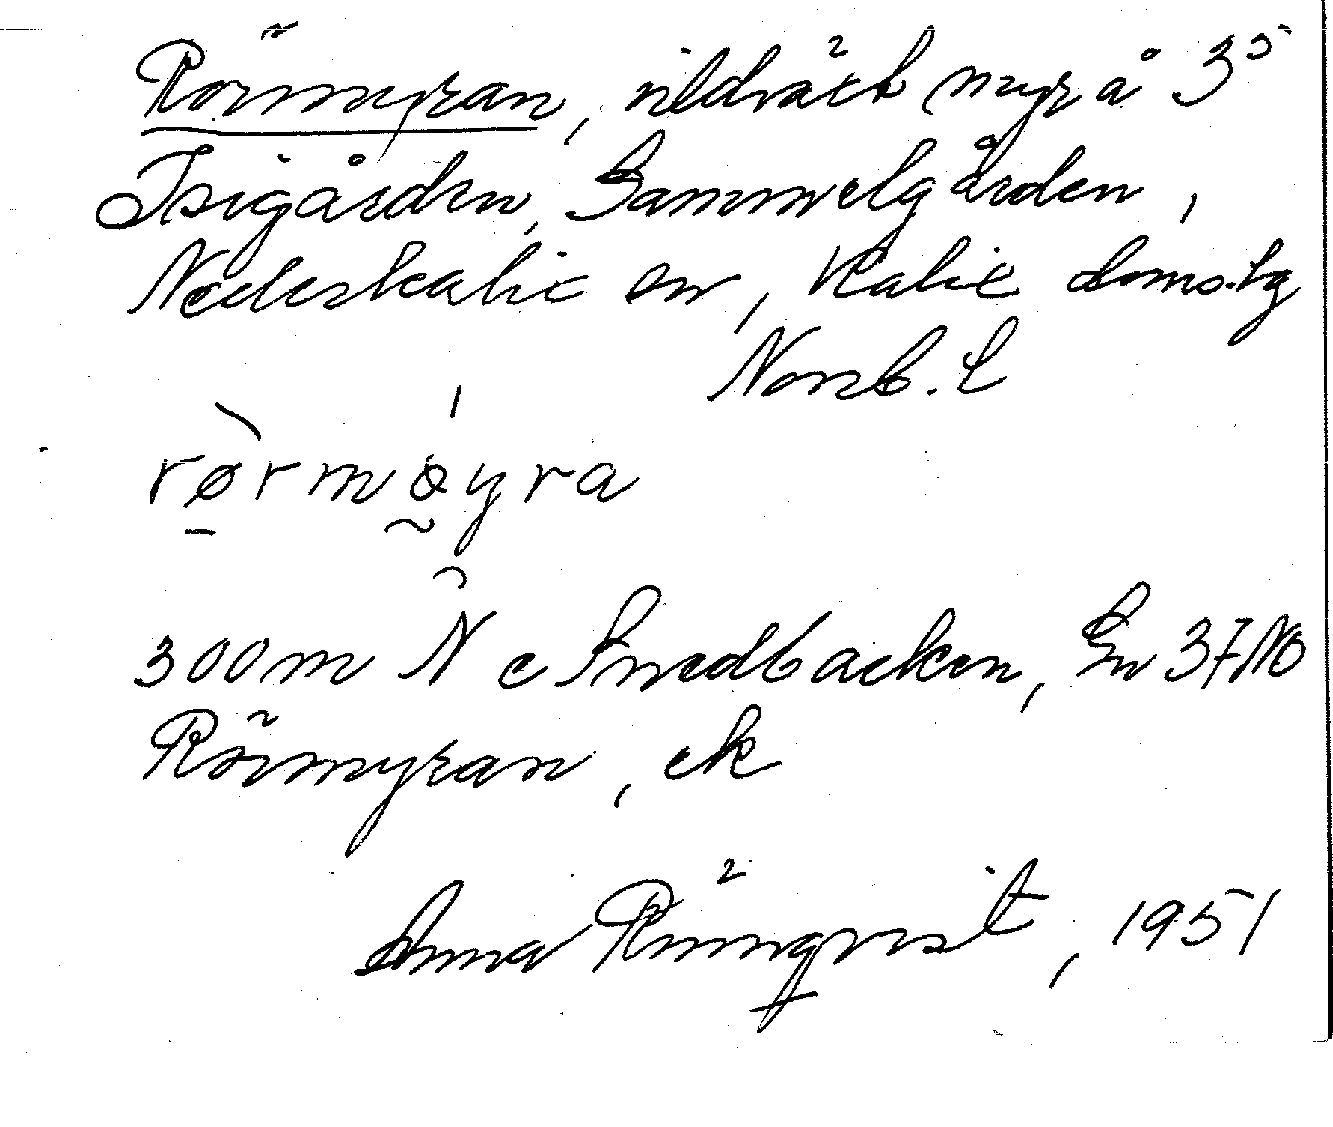 Rörmyran, vildväch myr å 3⁵
Isigården, Sammelgården,
Nederkalix sn, Kalix domsbg
Norrb. L
rørmøyra
300m N e Smedbacken, En 37 NO
Rörmyran, ek
Anna Rönnqvist, 1951